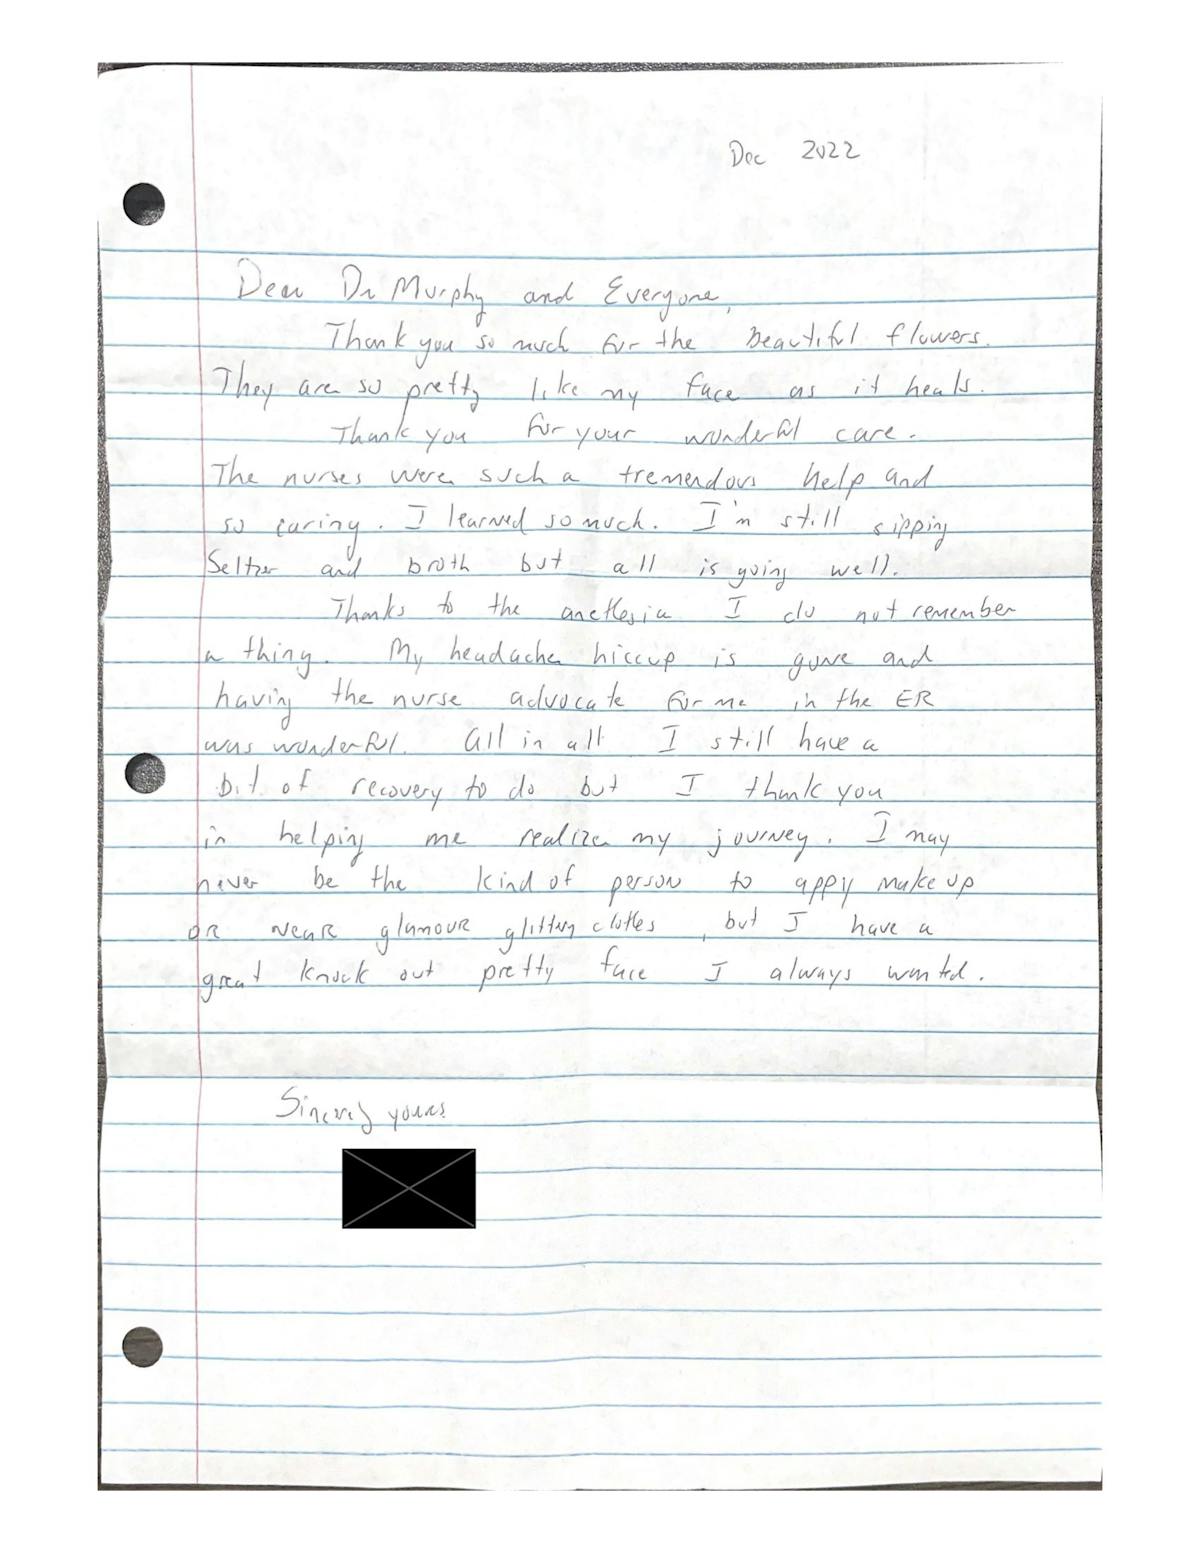 Dec 2022
Dear Dr Murphy and Everyone,
Thank you so much for the beautiful flowers.
They are so pretty like my face as it heals.
Thank you for your wonderful care.
The nurses were such a tremendous help and
so caring. I learned so much. I'm still sipping
Seltzer and broth but all is going well.
Thanks to the anethesia I do not remember
a thing. My headache hiccup is gone and
having the nurse advocate for me in the ER
was wonderful. All in all I still have a
bit of recovery to do but I thank you
in helping me realize my journey. I may
never be the kind of person to apply makeup
or near glamour glittery clothes, but I have a
great knock out pretty face I always wanted.
Sincerely yours